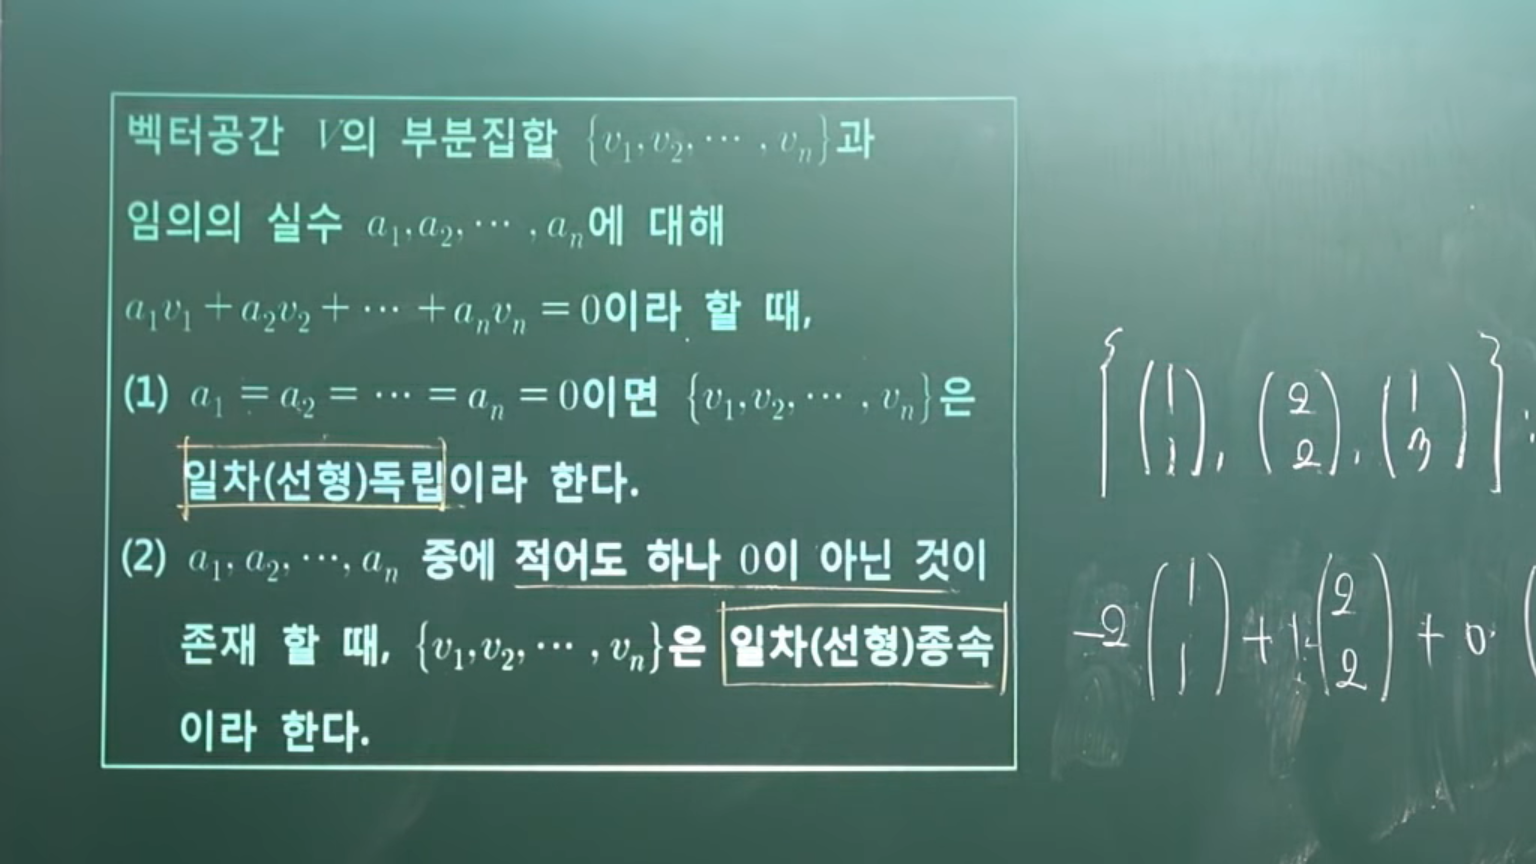 벡터공간 V의 부분집합 {v₁, v₂, ⋯ , vₙ}과
임의의 실수 a₁, a₂, ⋯ , aₙ에 대해
a₁v₁ + a₂v₂ + ⋯ + aₙvₙ = 0이라 할 때,
(1) a₁ = a₂ = ⋯ = aₙ = 0이면 {v₁, v₂, ⋯ , vₙ}은
일차(선형)독립이라 한다.
(2) a₁, a₂, ⋯, aₙ 중에 적어도 하나 0이 아닌 것이
존재 할 때, {v₁, v₂, ⋯ , vₙ}은 일차(선형)종속
이라 한다.
{(1 1), (2 2), (1 3)} :
-2(1 1) + 1·(2 2) + 0·(